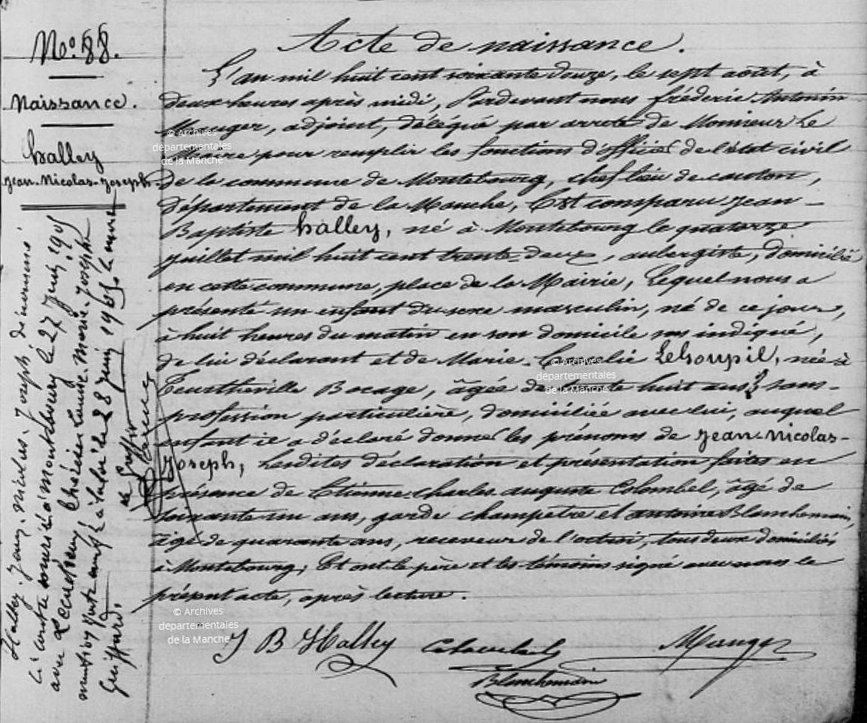 N.º 88.
Naissance.
halley
Jean-Nicolas-Joseph
Acte de naissance.
L'an mil huit cent soixante douze, le sept août, à
deux heures après midi, Pardevant nous frédéric Antonin
Mauger, adjoint, délégué par arrêté de Monsieur le
pour remplir les fonctions d'officier de l'état civil
de la commune de Montebourg, chef lieu de canton,
département de la Manche, Est comparu Jean-
Baptiste halley, né à Montebourg le quatorze
juillet mil huit cent trente-deux, aubergiste, domicilié
en cette commune, place de la Mairie, Lequel nous a
présenté un enfant du sexe masculin, né de ce jour,
à huit heures du matin en son domicile sus indiqué,
de lui déclarant et de Marie Lehoupil, née à
Teurthéville Bocage, âgée de huit ans, sans
profession particulière, domiciliée avec lui, auquel
enfant il a déclaré donner les prénoms de Jean-Nicolas-
Joseph, lesdites déclaration et présentation faites en
présence de Etienne Charles auguste Colombel, âgé de
soixante un ans, garde champêtre et antoine Blanchemain,
âgé de quarante ans, receveur de l'octroi, tous deux domiciliés
à Montebourg, Et ont le père et les témoins signé avec nous le
présent acte, après lecture.
J B Halley
Mauger
Blanchemain
Halley Jean-Nicolas-Joseph, dénommé
ci contre marié à Montebourg le 27 Juin 1905
avec Lecuisseur, Louise-Marie-Joseph
mention 28 Juin 1905. Le maire
le Greffier
© Archives
départementales
de la Manche
© Archives
départementales
de la Manche
© Archives
départementales
de la Manche